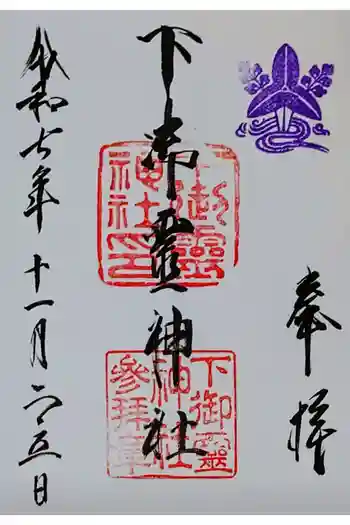 奉拝
下御霊神社
下御靈神社印
下御靈神社参拝章
令和七年十一月二五日